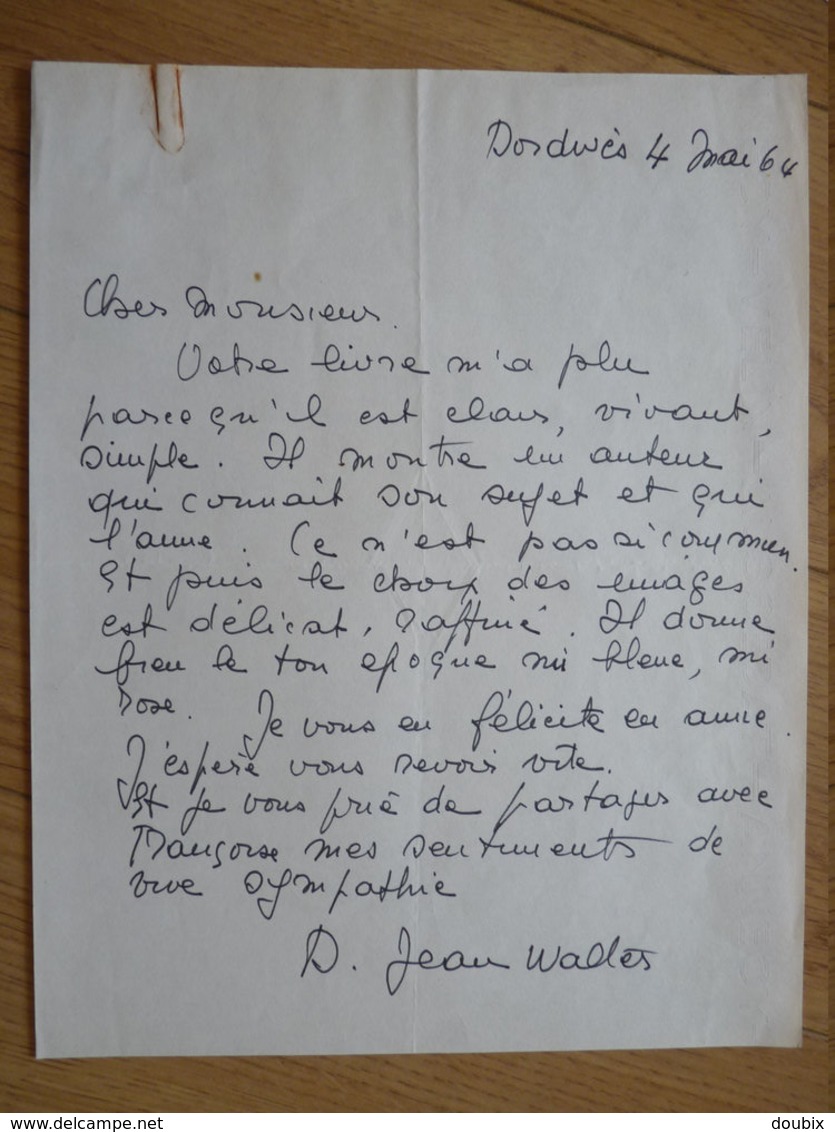 Dordives 4 Mai 64
Cher Monsieur.
Votre livre m'a plu
parce qu'il est clair, vivant,
simple. Il montre un auteur
qui connait son sujet et qui
l'aime. Ce n'est pas si commun.
Et puis le choix des images
est délicat, raffiné. Il donne
bien le ton époque mi bleue, mi
rose. Je vous en félicite en amie.
J'espère vous revoir vite.
Et je vous prie de partager avec
Françoise mes sentiments de
vive sympathie
D. Jean Walter
delcampe.net
doubix